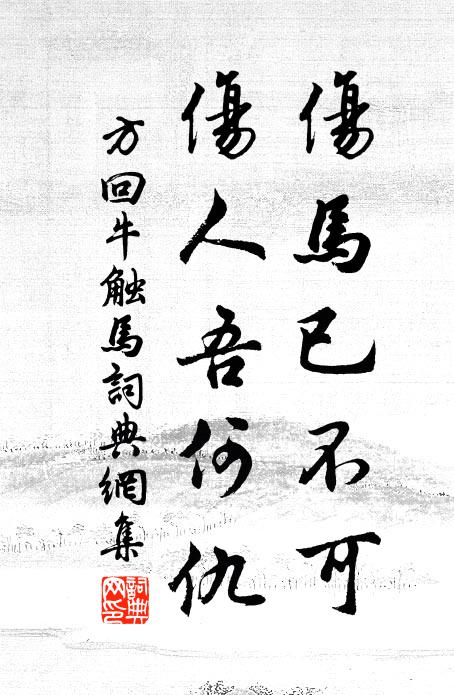 傷馬已不可
傷人吾何仇
方回牛触馬詞典網集
詞典網印